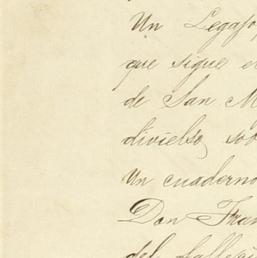 Un Legajo
que sigue e
de San M
divielso, so
Un cuaderno
Don Fran
del falleci